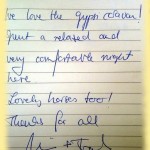 We love the gypsy caravan!
Spent a relaxed and
very comfortable night
here
Lovely horses too!
Thanks for all